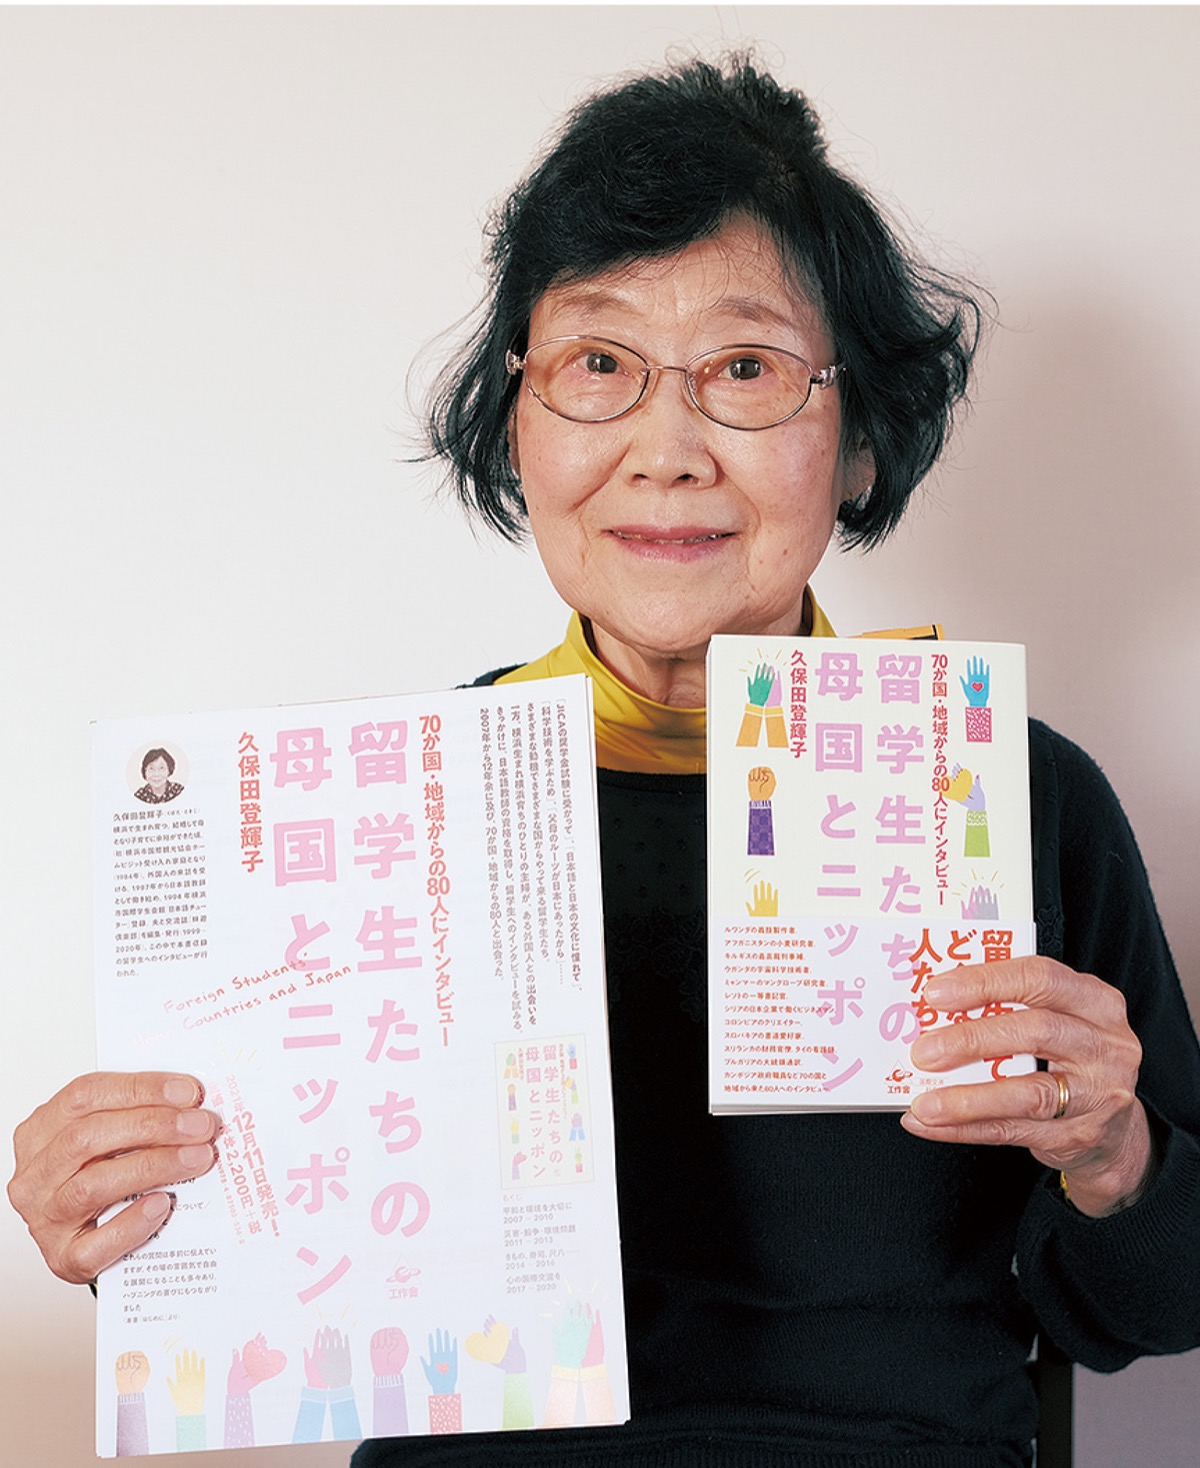 70か国・地域からの80人にインタビュー
留学生たちの
母国とニッポン
久保田登輝子
「JICAの奨学金試験に受かって」、「日本語と日本の文化に憧れて」、
「科学技術を学ぶため」、「父母のルーツが日本にあったから」……
さまざまな動機でさまざまな国からやって来る留学生たち。
一方、横浜生まれ横浜育ちのひとりの主婦が、ある外国人との出会いを
きっかけに、日本語教師の資格を取得し、留学生へのインタビューを試みる。
2007年から12年余に及び、70か国・地域からの80人と出会った。
久保田登輝子
横浜で生まれ育つ。結婚して母
となり子育てに余裕ができた頃、
(社)横浜市国際観光協会ホー
ムビジット受け入れ家庭となり
(1984年)、外国人の来訪を受
ける。1987年から日本語教師
として働き始め、1994年横浜
市国際学生会館 日本語チュー
ター登録。夫と交流誌「
倶楽部」を編集・発行(1999-
2020年)。この中で本書収録
の留学生へのインタビューが行
われた。
Foreign Students'
Countries and Japan
2021年12月11日発売!
本体2,200円+税
について/
これらの質問は事前に伝えてい
ますが、その場の雰囲気で自由
な展開になることも多々あり、
ハプニングの喜びにもつながり
ました
(本書 はじめに より)
留学生たちの
母国とニッポン
もくじ
平和と環境を大切に
2007 — 2010
災害・紛争・環境問題
2011 — 2013
きもの、寿司、尺八……
2014 — 2016
心の国際交流を
2017 — 2020
工作舎
70か国・地域からの80人にインタビュー
留学生たちの
母国とニッポン
久保田登輝子
留学生って
どんな
人たち
ルワンダの義肢製作者、
アフガニスタンの小麦研究者、
キルギスの最高裁判事補、
ウガンダの宇宙科学技術者、
ミャンマーのマングローブ研究者、
レソトの一等書記官、
シリアの日本企業で働くビジネスマン、
コロンビアのクリエイター、
スロバキアの書道愛好家、
スリランカの財務官僚、タイの看護師、
ブルガリアの大統領通訳、
カンボジア政府職員など70の国と
地域から来た80人へのインタビュー
工作舎
国際交流